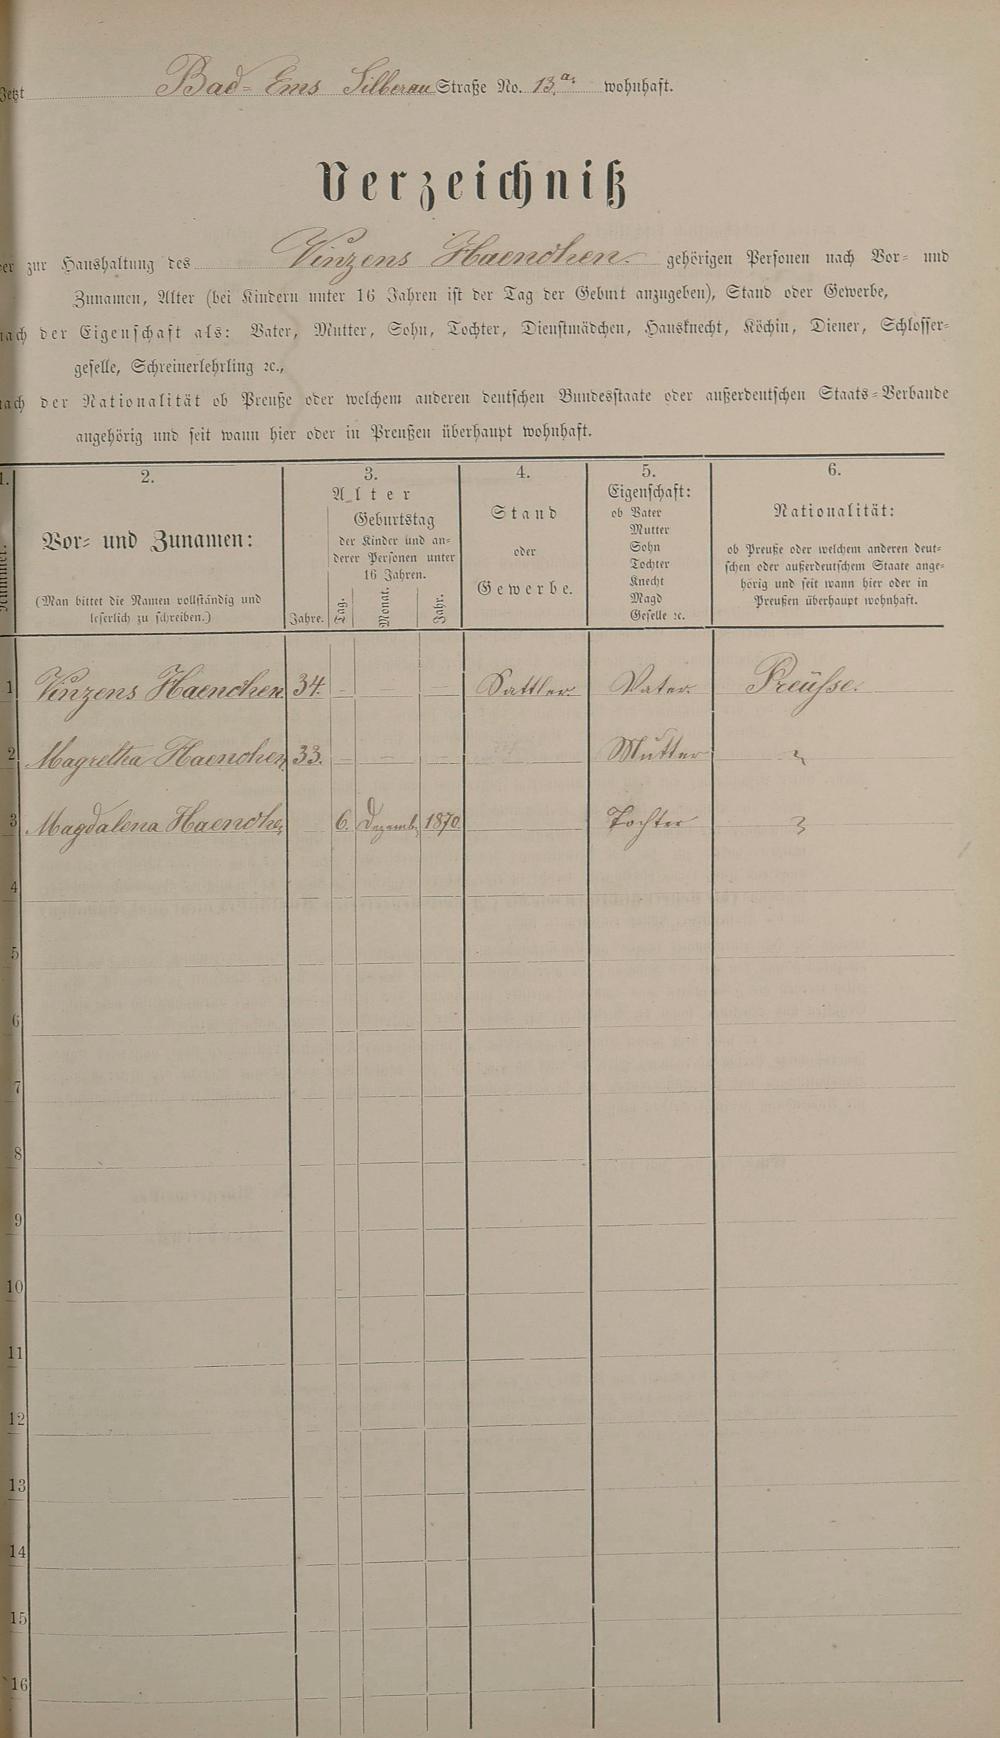 Jetzt Bad-Ems Silberau Straße No. 13.a. wohnhaft.
Verzeichniß
der zur Haushaltung des Vinzens Haenchen gehörigen Personen nach Vor- und
Zunamen, Alter (bei Kindern unter 16 Jahren ist der Tag der Geburt anzugeben), Stand oder Gewerbe,
nach der Eigenschaft als: Vater, Mutter, Sohn, Tochter, Dienstmädchen, Hausknecht, Köchin, Diener, Schlosser-
geselle, Schreinerlehrling ꝛc.,
nach der Nationalität ob Preuße oder welchem anderen deutschen Bundesstaate oder außerdeutschen Staats-Verbande
angehörig und seit wann hier oder in Preußen überhaupt wohnhaft.
1.
Nummer.
2.
Vor- und Zunamen:
(Man bittet die Namen vollständig und
leserlich zu schreiben.)
3.
Alter
Jahre.
Geburtstag
der Kinder und an-
derer Personen unter
16 Jahren.
Tag. Monat. Jahr.
4.
Stand
oder
Gewerbe.
5.
Eigenschaft:
ob Vater
Mutter
Sohn
Tochter
Knecht
Magd
Geselle ꝛc.
6.
Nationalität:
ob Preuße oder welchem anderen deut-
schen oder außerdeutschem Staate ange-
hörig und seit wann hier oder in
Preußen überhaupt wohnhaft.
1 Vinzens Haenchen 34. – – – Sattler Vater. Preüsse.
2 Magretha Haenchen 33. – – – Mutter "
3 Magdalena Haenche 6. Dezemb. 1870 Tochter "
4
5
6
7
8
9
10
11
12
13
14
15
16